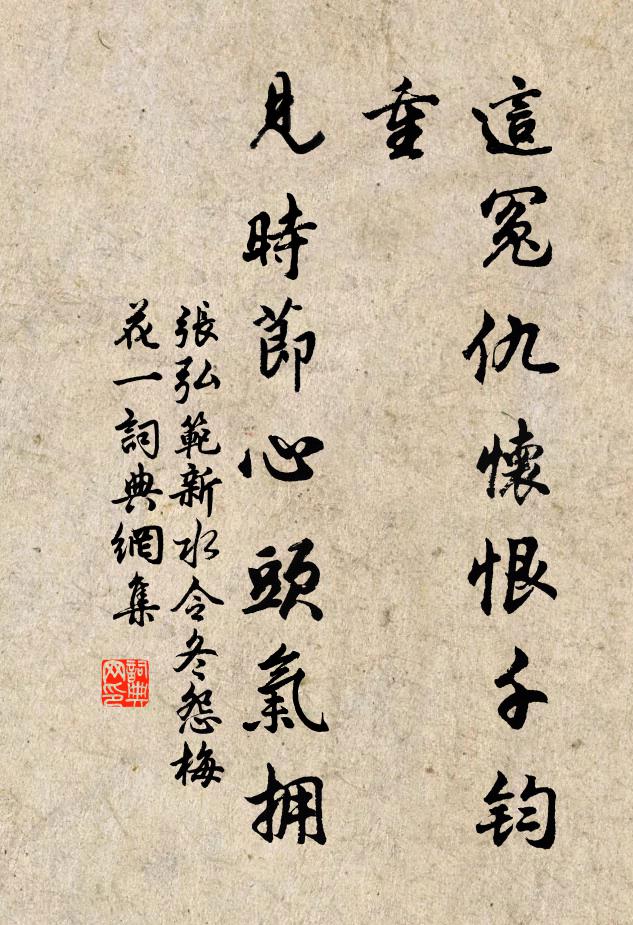 這冤仇懷恨千鈞
重
見時節心頭氣擁
張弘範新水令冬怨梅
花一詞典網集
詞典
网印